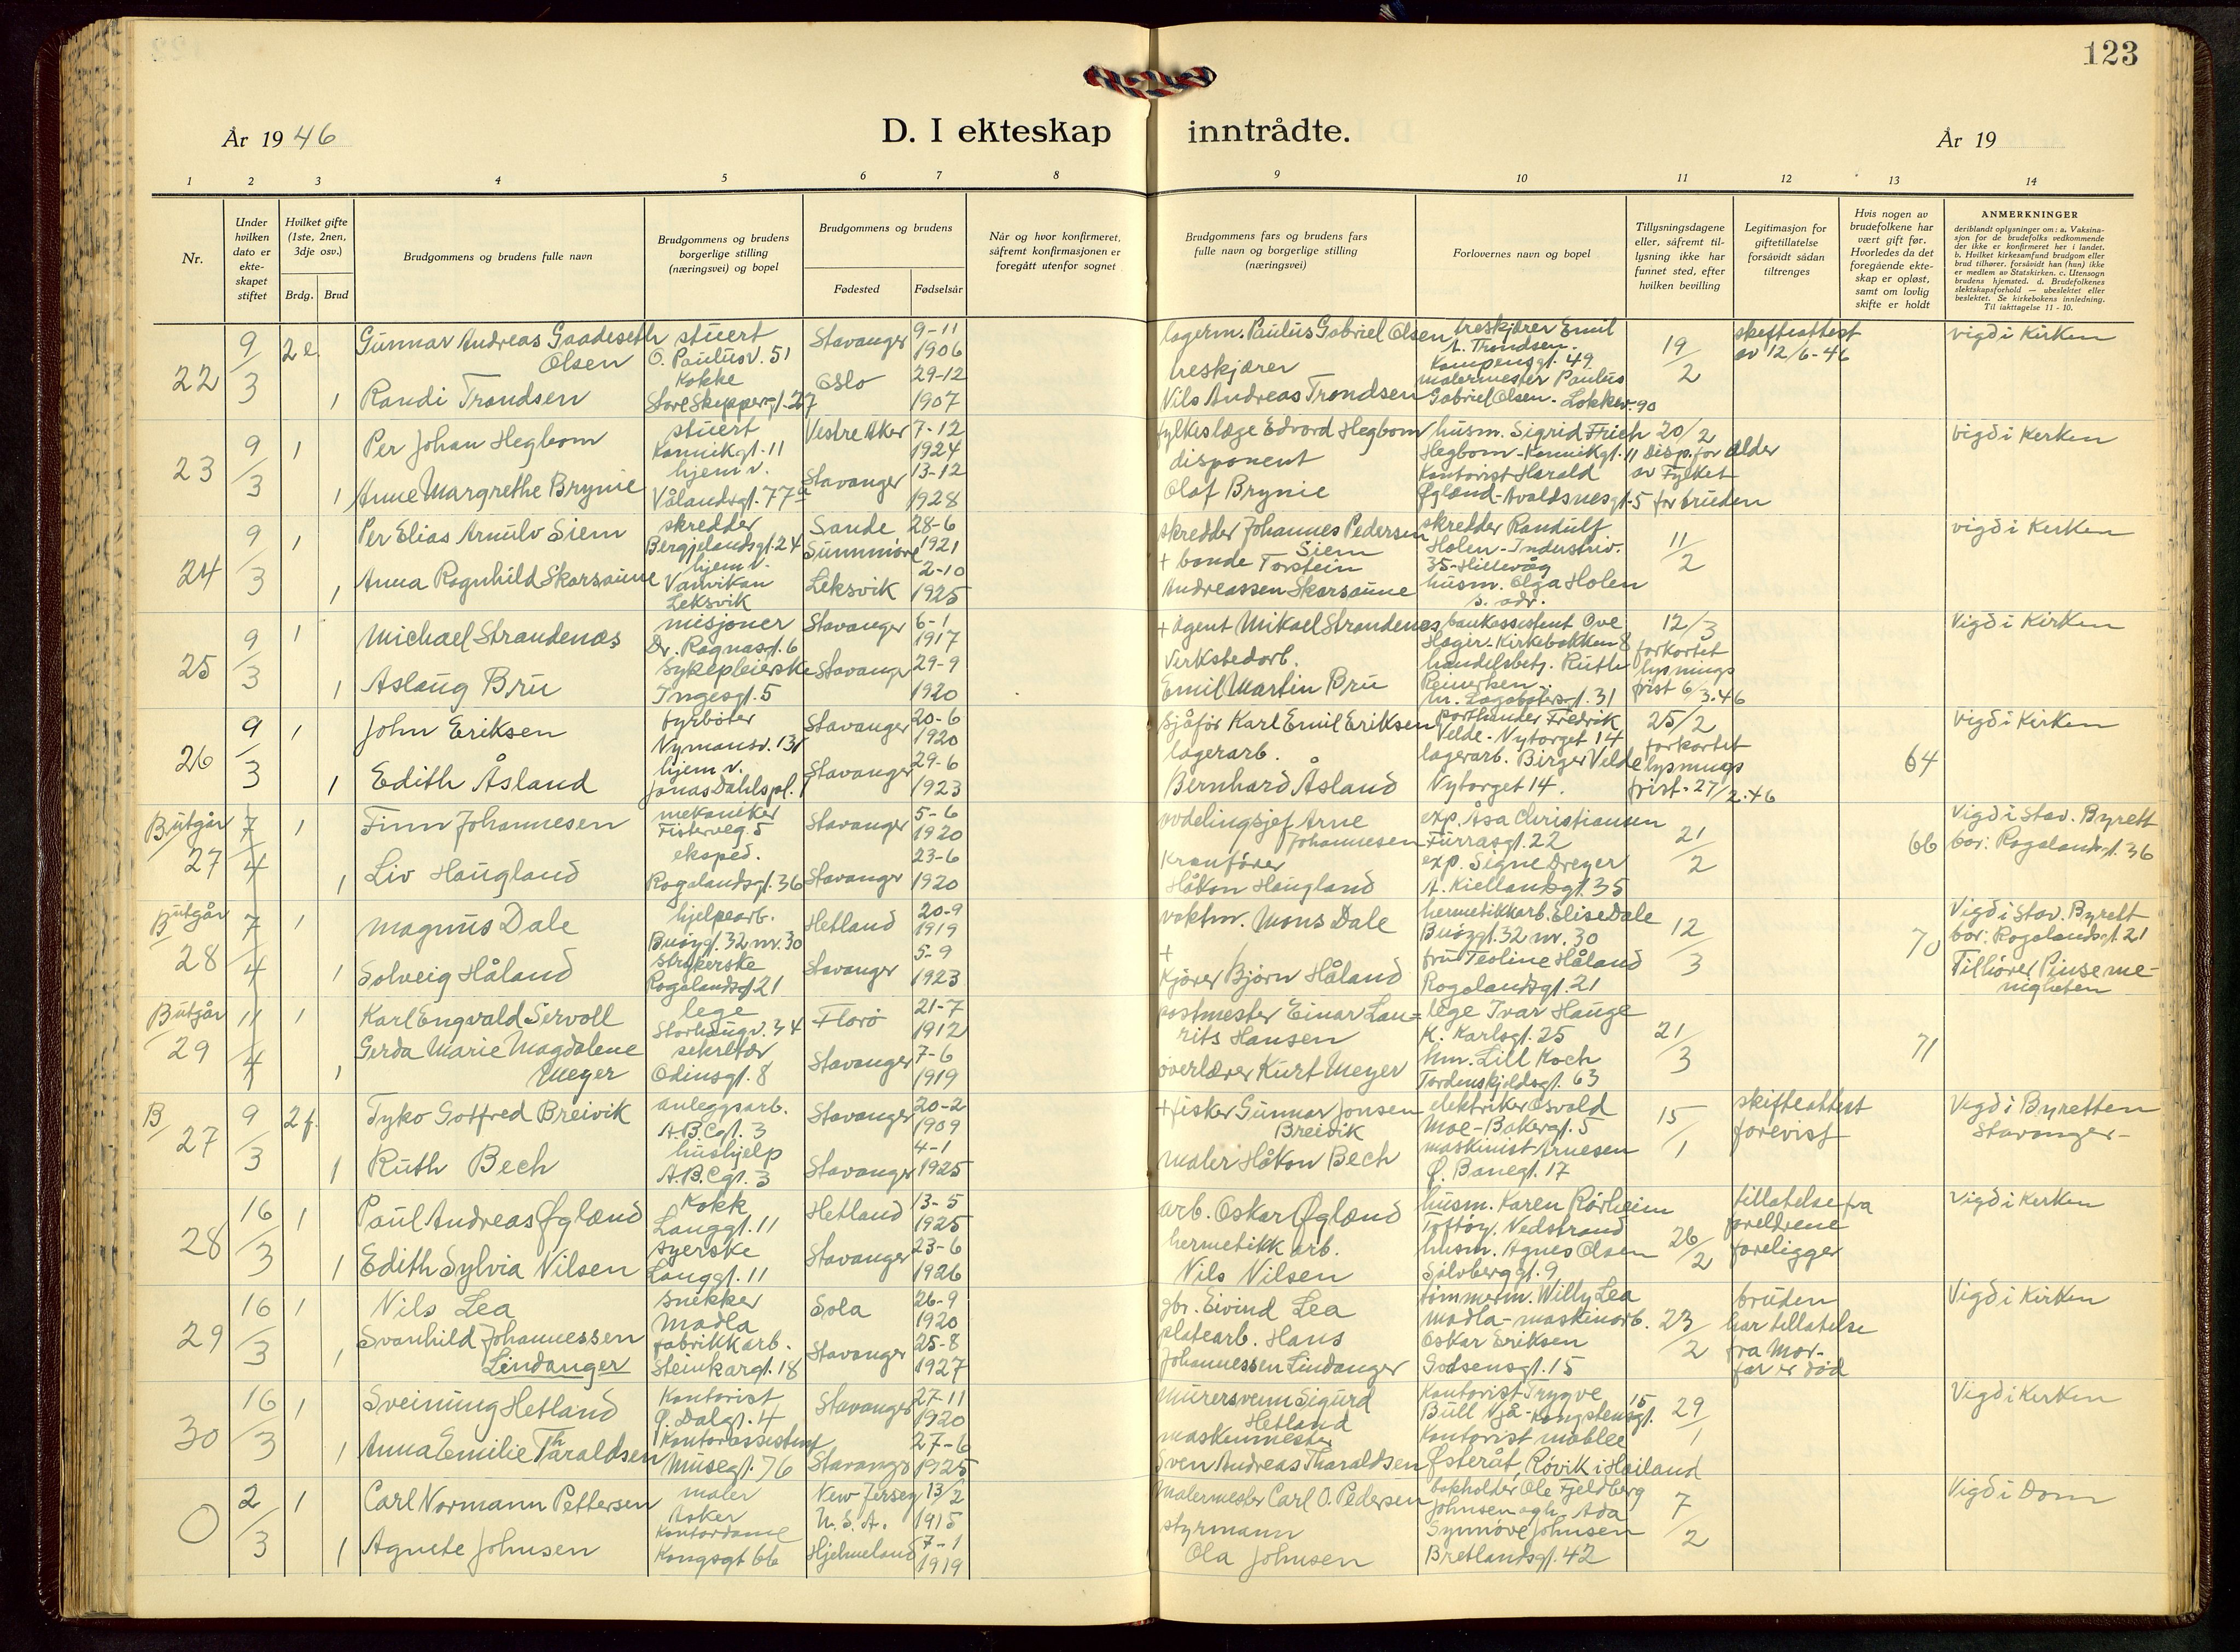 123
År 1946
D. I ekteskap inntrådte.
År 19
1 2 3 4 5 6 7 8 9 10 11 12 13 14
Nr.
Under hvilken dato er ekte-skapet stiftet
Hvilket gifte (1ste, 2nen, 3dje osv.)
Brdg. Brud
Brudgommens og brudens fulle navn
Brudgommens og brudens borgerlige stilling (næringsvei) og bopel
Brudgommens og brudens
Fødested
Fødselsår
Når og hvor konfirmeret, såfremt konfirmasjonen er foregått utenfor sognet
Brudgommens fars og brudens fars fulle navn og borgerlige stilling (næringsvei)
Forlovernes navn og bopel
Tillysningsdagene eller, såfremt til-lysning ikke har funnet sted, efter hvilken bevilling
Legitimasjon for giftetillatelse forsåvidt sådan tiltrenges
Hvis nogen av brudefolkene har vært gift før. Hvorledes da det foregående ekte-skap er opløst, samt om lovlig skifte er holdt
ANMERKNINGER
deriblandt oplysninger om: a. Vaksina-sjon for de brudefolks vedkommende der ikke er konfirmeret her i landet. b. Hvilket kirkesamfund brudgom eller brud tilhører, forsåvidt han (hun) ikke er medlem av Statskirken. c. Utensogn brudens hjemsted. d. Brudefolkenes slektskapsforhold — ubeslektet eller beslektet. Se kirkebokens innledning. Til iakttagelse 11 - 10.
22
9/3
2 e.
Gunnar Andreas Gaadeseth Olsen
stuert
O. Paulusv. 51
Stavanger
9-11
1906
lagerm. Paulus Gabriel Olsen
treskjærer Emil
A. Trondsen.
Kampensgt. 49
19/2
skifteattest
av 12/6-46
vigd i Kirken
1
Randi Trondsen
Kokke
Store Skippergt. 27
Oslo
29-12
1907
treskjærer
Nils Andreas Trondsen
malermester Paulus
Gabriel Olsen - Lokkev. 90
23
9/3
1
Per Johan Hegbom
stuert
Kannikgt. 11
Vestre Aker
7-12
1924
fylkeslæge Edvard Hegbom
husm. Sigrid Frich
Hegbom - Kannikgt. 11
20/2
Disp. for alder
av Fylket
for bruden
vigd i Kirken
1
Anne Margrethe Brynie
hjem v.
Vålandsgt. 77a
Stavanger
13-12
1928
disponent
Olaf Brynie
Kontorist Harald
Øglænd - Avaldsnesgt. 5
24
9/3
1
Per Elias Arnulv Siem
skredder
Bergjelandsgt. 24
Sande
Sunnmöre
28-6
1921
skredder Johannes Pedersen
Siem
skredder Randulf
Holen - Industriv.
35 - Hillevåg
11/2
vigd i Kirken
1
Anna Ragnhild Skarsaune
hjem v.
Vanvikan
Leksvik
Leksvik
2-10
1925
+ bonde Torstein
Andreassen Skarsaune
husm. Olga Holen
s. adr.
25
9/3
1
Michael Strandenæs
misjonær
Dr. Ragnasgt. 6
Stavanger
6-1
1917
+ agent Mikael Strandenæs
bankassistent Ove
Hager - Kirkebakken 8
12/3
forkortet
lysnings
frist 6/3.46
Vigd i Kirken
1
Aslaug Bru
Sykepleierske
Ingesgt. 5
Stavanger
29-9
1920
Virkstedarb.
Emil Martin Bru
handelsbetj. Ruth
Reinertsen
M. Lagabøtersgt. 31
26
9/3
1
John Eriksen
fyrbøter
Nymansv. 131
Stavanger
20-6
1920
Sjåfør Karl Emil Eriksen
Fredrik
Velde - Nytorget 14
25/2
forkortet
lysnings
frist - 27/2.46
64
Vigd i Kirken
1
Edith Åsland
hjem v.
Jonas Dahls pl. 1
Stavanger
29-6
1923
lagerarb.
Bernhard Åsland
lagerarb. Birger Velde
Nytorget 14.
B utgår
27
7/4
1
Finn Johannesen
mekaniker
Fisterveg. 5
Stavanger
5-6
1920
avdelingsjef Arne
Johannesen
exp. Åsa Christiansen
Furrasgt. 22
21/2
66
Vigd i Stav. Byrett
bor: Rogalandsgt. 36
1
Liv Haugland
eksped.
Rogalandsgt. 36
Stavanger
23-6
1920
Kranfører
Håkon Haugland
exp. Signe Dreyer
A. Kiellandsgt. 35
B utgår
28
7/4
1
Magnus Dale
hjelpearb.
Buøygt. 32 nr. 30
Hetland
20-9
1919
vaktm. Mons Dale
hermetikkarb. Elise Dale
Buøygt. 32 nr. 30
12/3
70
Vigd i Stav. Byrett
bor: Rogalandsgt. 21
Tilhører Pinseme-
nigheten
1
Solveig Håland
strykerske
Rogalandsgt 21
Stavanger
5-9
1923
+
Kjører Bjørn Håland
fru Teoline Håland
Rogalandsgt. 21
B utgår
29
11/4
1
Karl Engvald Servoll
lege
Storhaugv. 34
Florö
21-7
1912
postmester Einar Lau=
rits Hansen
lege Ivar Hauge
K. Karlsgt. 25
21/3
71
1
Gerda Marie Magdalene
Meyer
sekretær
Odinsgt. 8
Stavanger
7-6
1919
overlærer Kurt Meyer
hm. Lill Koch
Tordenskjoldsgt. 63
B/27
9/3
2 f.
Tyko Gotfred Breivik
anleggsarb.
A.B.Cgt. 3
Stavanger
20-2
1909
+ fisker Gunnar Jonsen
Breivik
elektriker Osvald
Moe - Bakergt. 5
15/1
skifteattest
forevist
Vigd i Byretten
Stavanger -
1
Ruth Bech
hushjelp
A.B.Cgt. 3
Stavanger
4-1
1925
maler Håkon Bech
maskinist Arnesen
Ø. Banegt. 17
28
16/3
1
Paul Andreas Øglænd
Kokk
Langgt. 11
Hetland
13-5
1925
arb. Oskar Øglænd
husm. Karen Rörheim
Toftöy. Nedstrand
26/2
tillatelse fra
foreldrene
foreligger
Vigd i Kirken
1
Edith Sylvia Nilsen
syerske
Langgt. 11
Stavanger
23-6
1926
hermetikk arb.
Nils Nilsen
husm. Agnes Olsen
Sølvberggt. 9
29
16/3
1
Nils Lea
snekker
Madla
Sola
26-9
1920
gbr. Eivind Lea
tömmerm. Willy Lea
Madla - maskinarb.
23/2
bruden
har tillatelse
fra Mor -
far er död
Vigd i Kirken
1
Svanhild Johannessen
Lindanger
fabrikkarb.
Steinkargt. 18
Stavanger
25-8
1927
platearb. Hans
Johannessen Lindanger
Oskar Eriksen
Godsensgt. 15
30
16/3
1
Sveinung Hetland
Kontorist
Ø. Dalgt. 4
Stavanger
27-11
1920
murersvenn Sigurd
Hetland
Kontorist Trygve
Bull Njå - Kongstensgt. 15
29/1
Vigd i Kirken
1
Anna Emilie Tharaldsen
Kontorassistent
Musegt. 76
Stavanger
27-6
1925
maskinmester
Sven Andreas Tharaldsen
Kontorist
Østeråt, Røvik i Høiland
0
2/3
1
Carl Normann Pettersen
maler
Asker
New Jersey
U.S.A.
13/2
1915
Malermester Carl O. Pedersen
bokholder Ole Fjeldberg
Johnsen og h. Ada
7/2
Vigd i Dom
1
Agnete Johnsen
Kontordame
Kongsgt 66
Hjelmeland
7-1
1919
styrmann
Ola Johnsen
Synnöve Johnsen
Bretlandsgt. 42